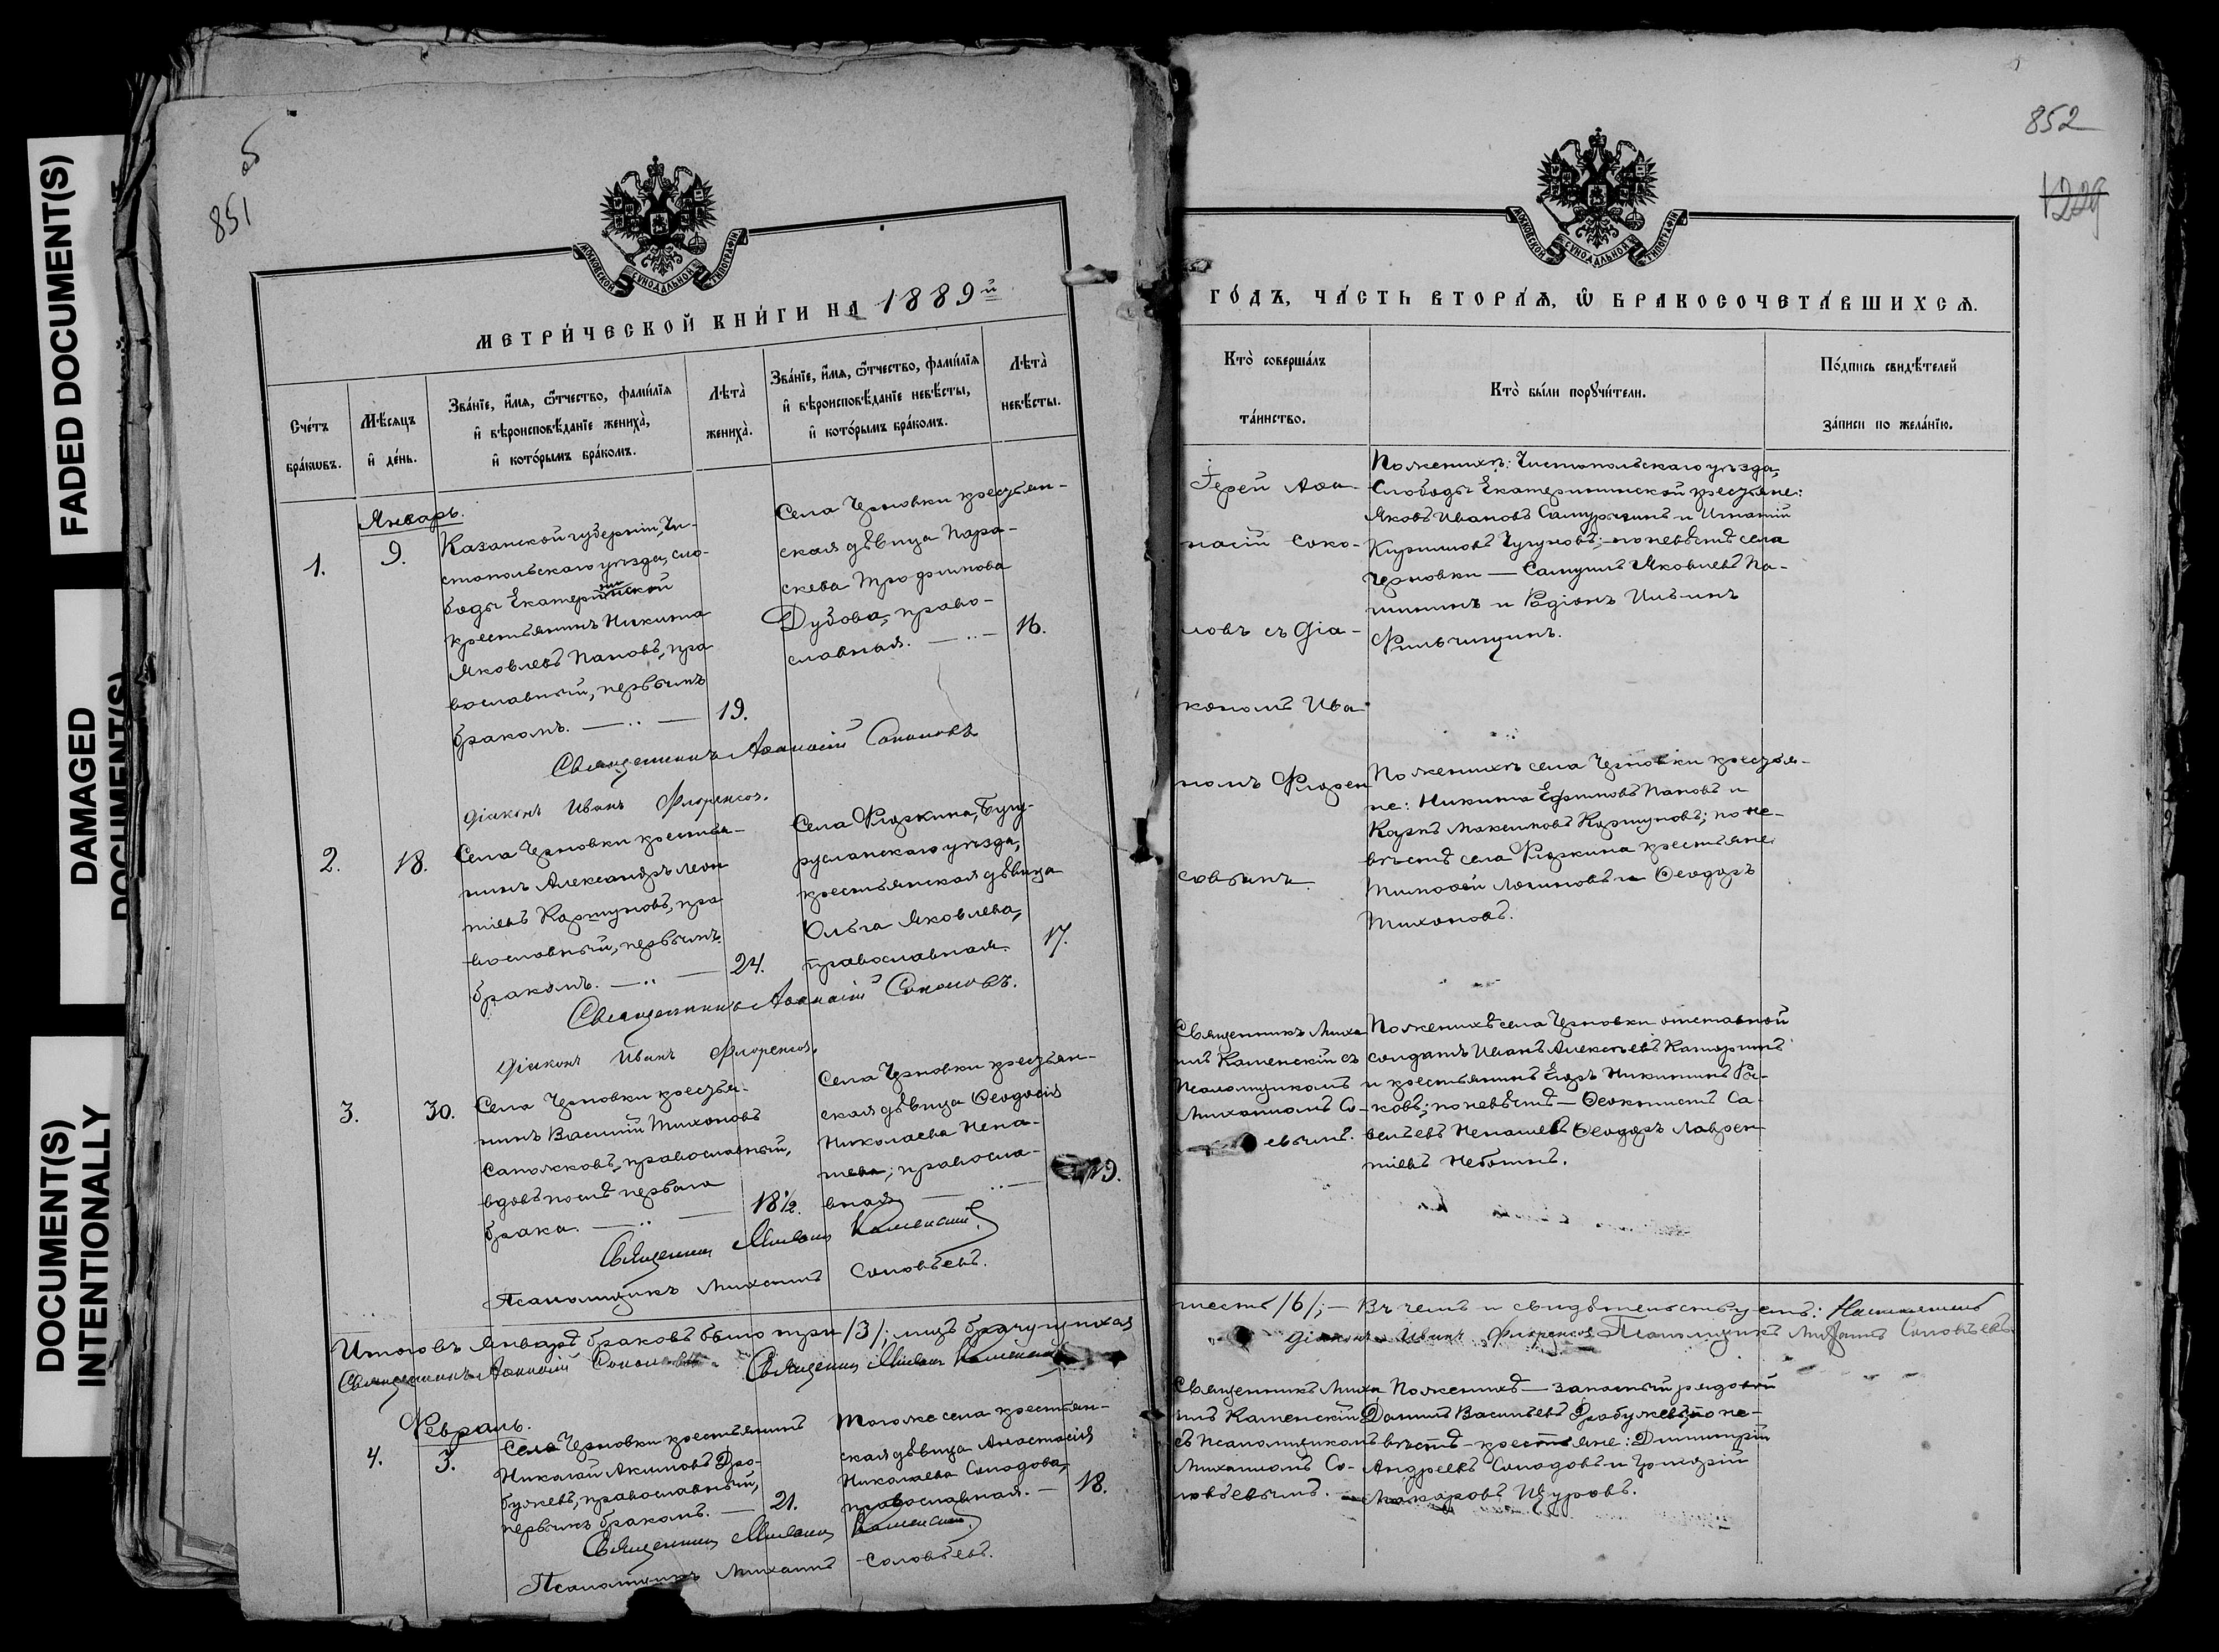 FADED DOCUMENT(S)
DAMAGED
DOCUMENT(S)
DOCUMENT(S)
INTENTIONALLY
851
об
МОСКОВСКОЙ СѴНОДАЛЬНОЙ ТИПОГРАФІИ
МЕТРИ́ЧЕСКОЙ КНИ́ГИ НА 1889й
Сче́тъ
бра́кѡвъ.
Мѣ́сяцъ
и҆ де́нь.
Зва́нїе, и҆́мѧ, ѻ҆́тчество, фамі́лїѧ
и҆ вѣроисповѣ́данїе жениха̀,
и҆ кото́рымъ бра́комъ.
Лѣта̀
жениха̀.
Зва́нїе, и҆́мѧ, ѻ҆́тчество, фамі́лїѧ
и҆ вѣроисповѣ́данїе невѣ́сты,
и҆ кото́рымъ бра́комъ.
Лѣта̀
невѣ́сты.
Январь.
1.
9.
Казанской губерніи, Чи-
стопольскаго уѣзда, сло-
боды Екатерининской
крестьянинъ Никита
Яковлевъ Пановъ, пра
вославный, первымъ
бракомъ.
19.
Села Черновки крестьян-
ская дѣвица Пара-
скева Трофимова
Дубова, право-
славная.
16.
Священникъ Аѳанасій Соколовъ
Діаконъ Иванъ Флоренсов.
2.
18.
Села Черновки крестья-
нинъ Александръ Леон
тіевъ Каргуновъ, пра
вославный, первымъ
бракомъ.
24.
Села Фляркина, Бугу-
русланскаго уѣзда,
крестьянская дѣвица
Ольга Яковлева,
православная.
17.
Священникъ Аѳанасій Соколовъ.
Діаконъ Иванъ Флоренсов.
3.
30.
Села Черновки крестья-
нинъ Василій Тихоновъ
Сапожковъ, православный,
вдовъ послѣ перваго
брака.
18½.
Села Черновки крестьян-
ская дѣвица Ѳеодосія
Николаева Нена-
шева; правосла-
вная
19.
Священник Михаилъ Каменскій
Псаломщикъ Михаилъ Соловьевъ.
Итого въ Январѣ браковъ было три /3/; лицъ брачущихся
Священникъ Аѳанасій Соколовъ Священник Михаилъ Каменскій
Февраль.
4.
3.
Села Черновки крестьянинъ
Николай Акимовъ Дро-
бужевъ, православный,
первымъ бракомъ.
21.
Тогоже села крестьян-
ская дѣвица Анастасія
Николаева Солодова,
православная.
18.
Священник Михаилъ Каменскій
Псаломщикъ Михаилъ Соловьевъ.
852
1229
МОСКОВСКОЙ СѴНОДАЛЬНОЙ ТИПОГРАФІИ
ГО́ДЪ, ЧА́СТЬ ВТОРА́Ѧ, Ѡ҆ БРАКОСОЧЕТА́ВШИХСѦ.
Кто̀ соверша́лъ
та́инство.
Кто̀ бы́ли порꙋчи́тели.
По́дпись свидѣ́телей
за́писи по жела́нїю.
Іерей Аѳа-
насій Соко-
ловъ съ діа-
кономъ Ива
номъ Флорен
совымъ.
По женихѣ: Чистопольскаго уѣзда,
Слободы Екатерининской крестьяне:
Яковъ Ивановъ и Игнатій
Кириловъ Чугуновъ; по невѣстѣ села
Черновки — Самуилъ Яковлевъ Па-
и Родіонъ Ильинъ
По женихѣ села Черновки крестья-
не: Никита Ефимовъ Пановъ и
Карпъ Максимовъ Каргуновъ; по не-
вѣстѣ села Фляркина крестьяне
Тимоѳей Логиновъ и Ѳеодоръ
Тихоновъ.
Священникъ Миха
илъ Каменскій съ
Псаломщикомъ
Михаиломъ Со-
евымъ.
По женихѣ села Черновки отставной
солдатъ Иванъ Алексѣевъ
и крестьянинъ Егоръ Никитинъ
ковъ; по невѣстѣ — Ѳеоктистъ Са-
вельевъ Ненашевъ Ѳеодоръ Лаврен
тіевъ
шесть /6/; — Въ чемъ и свидѣтельствуемъ:
діаконъ Иванъ Флоренсов Псаломщикъ Михаилъ Соловьевъ
Священникъ Миха
илъ Каменскій
съ Псаломщикомъ
Михаиломъ Со-
ловьевымъ.
По женихѣ — запасный рядовой
Даніилъ Васильевъ Дробужевъ, по не-
вѣстѣ — крестьяне: Димитрій
Андреевъ Солодовъ и Григорій
Макаровъ Щуровъ.